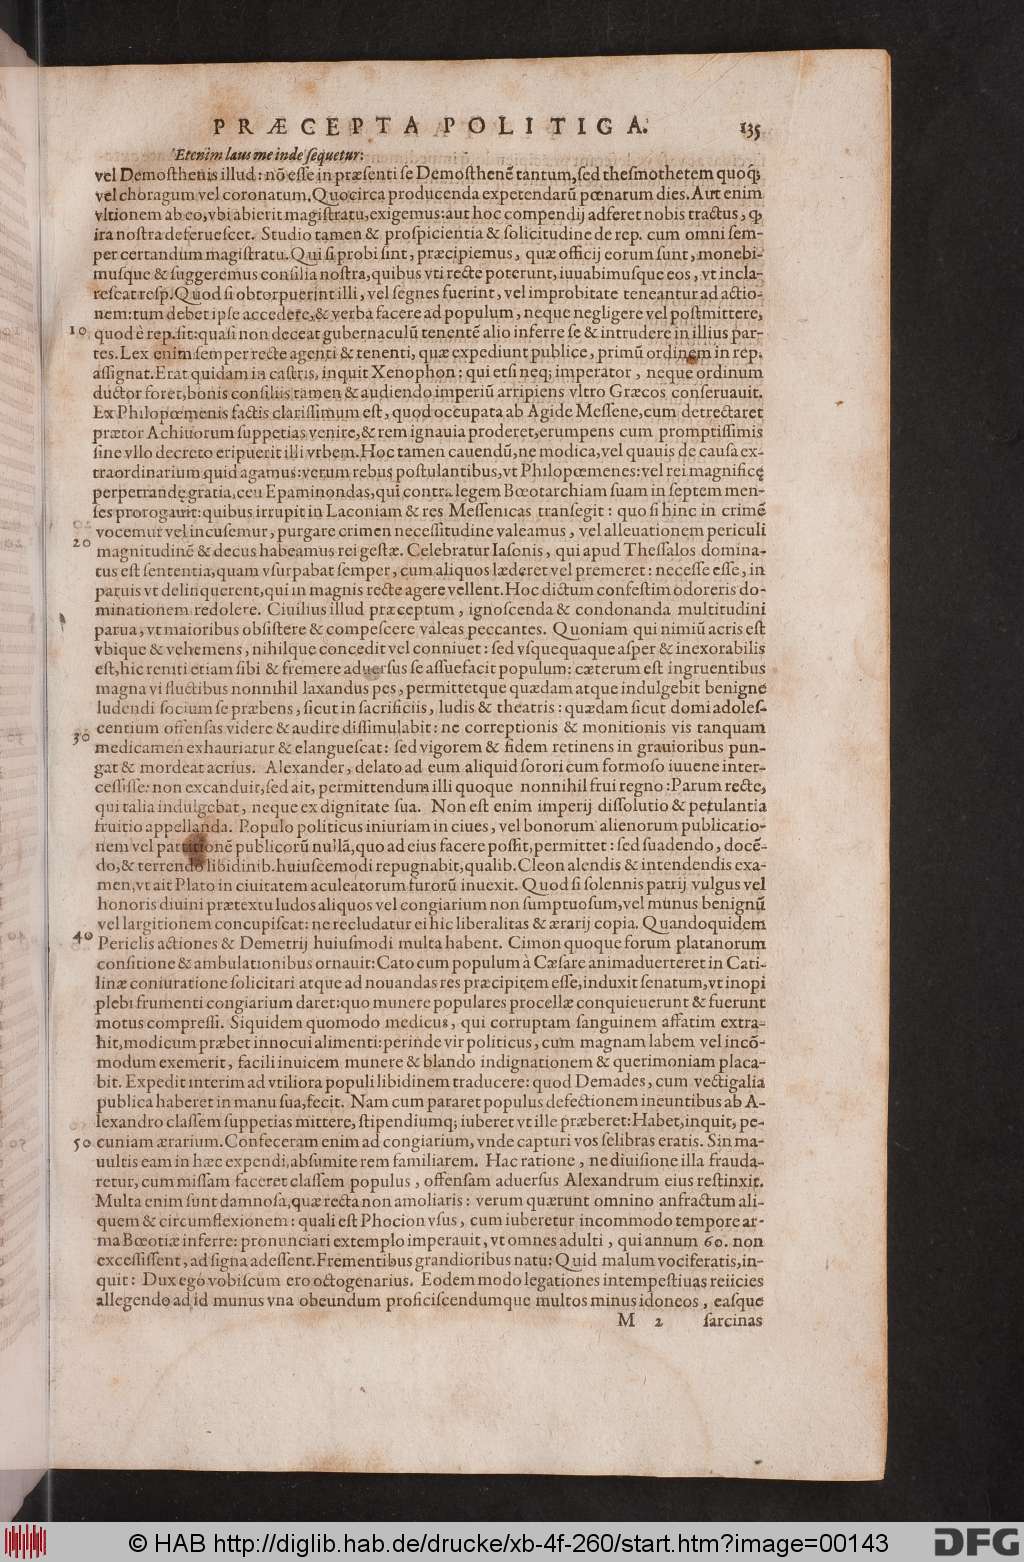 PRÆCEPTA POLITIGA. 135
Etenim laus me inde ſequetur:
vel Demoſthenis illud: nõ eſſe in præſenti ſe Demoſthenẽ tantum, ſed theſmothetem quoq;
vel choragum vel coronatum. Quocirca producenda expetendarũ pœnarum dies. Aut enim
vltionem ab eo, vbi abierit magiſtratu, exigemus: aut hoc compendij adferet nobis tractus, ꝙ
ira noſtra deferueſcet. Studio tamen & proſpicientia & ſolicitudine de rep. cum omni ſem-
per certandum magiſtratu. Qui ſi probi ſint, præcipiemus, quæ officij eorum ſunt, monebi-
muſque & ſuggeremus conſilia noſtra, quibus vti recte poterunt, iuuabimuſque eos, vt incla-
reſcat reſp. Quod ſi obtorpuerint illi, vel ſegnes fuerint, vel improbitate teneantur ad actio-
nem: tum debet ipſe accedere, & verba facere ad populum, neque negligere vel poſtmittere,
10 quod è rep. ſit: quaſi non deceat gubernaculũ tenentẽ alio inferre ſe & intrudere in illius par-
tes. Lex enim ſemper recte agenti & tenenti, quæ expediunt publice, primũ ordinem in rep.
aſſignat. Erat quidam in caſtris, inquit Xenophon: qui etſi neq; imperator, neque ordinum
ductor foret, bonis conſiliis tamen & audiendo imperiũ arripiens vltro Græcos conſeruauit.
Ex Philopœmenis factis clariſſimum eſt, quod occupata ab Agide Meſſene, cum detrectaret
prætor Achiuorum ſuppetias venire, & rem ignauia proderet, erumpens cum promptiſſimis
ſine vllo decreto eripuerit illi vrbem. Hoc tamen cauendũ, ne modica, vel quauis de cauſa ex-
traordinarium quid agamus: verum rebus poſtulantibus, vt Philopœmenes: vel rei magnificę
perpetrandę gratia, ceu Epaminondas, qui contra legem Bœotarchiam ſuam in ſeptem men-
ſes prorogauit: quibus irrupit in Laconiam & res Meſſenicas tranſegit: quo ſi hinc in crimẽ
vocemur vel incuſemur, purgare crimen neceſſitudine valeamus, vel alleuationem periculi
20 magnitudinẽ & decus habeamus rei geſtæ. Celebratur Iaſonis, qui apud Theſſalos domina-
tus eſt ſententia, quam vſurpabat ſemper, cum aliquos læderet vel premeret: neceſſe eſſe, in
paruis vt delinquerent, qui in magnis recte agere vellent. Hoc dictum confeſtim odoreris do-
minationem redolere. Ciuilius illud præceptum, ignoſcenda & condonanda multitudini
parua, vt maioribus obſiſtere & compeſcere valeas peccantes. Quoniam qui nimiũ acris eſt
vbique & vehemens, nihilque concedit vel conniuet: ſed vſquequaque aſper & inexorabilis
eſt, hic reniti etiam ſibi & fremere aduerſus ſe aſſuefacit populum: cæterum eſt ingruentibus
magna vi fluctibus nonnihil laxandus pes, permittetque quædam atque indulgebit benigne
ludendi ſocium ſe præbens, ſicut in ſacrificiis, ludis & theatris: quædam ſicut domi adoleſ-
centium offenſas videre & audire diſſimulabit: ne correptionis & monitionis vis tanquam
30 medicamen exhauriatur & elangueſcat: ſed vigorem & fidem retinens in grauioribus pun-
gat & mordeat acrius. Alexander, delato ad eum aliquid ſorori cum formoſo iuuene inter-
ceſſiſſe: non excanduit, ſed ait, permittendum illi quoque nonnihil frui regno: Parum recte,
qui talia indulgebat, neque ex dignitate ſua. Non eſt enim imperij diſſolutio & petulantia
fruitio appellanda. Populo politicus iniuriam in ciues, vel bonorum alienorum publicatio-
nem vel partitionẽ publicorũ nullã, quo ad eius facere poſſit, permittet: ſed ſuadendo, docẽ-
do, & terrendo libidinib. huiuſcemodi repugnabit, qualib. Cleon alendis & intendendis exa-
men, vt ait Plato in ciuitatem aculeatorum furorũ inuexit. Quod ſi ſolennis patrij vulgus vel
honoris diuini prætextu ludos aliquos vel congiarium non ſumptuoſum, vel munus benignũ
vel largitionem concupiſcat: ne recludatur ei hic liberalitas & ærarij copia. Quandoquidem
40 Periclis actiones & Demetrij huiuſmodi multa habent. Cimon quoque forum platanorum
conſitione & ambulationibus ornauit: Cato cum populum à Cæſare animaduerteret in Cati-
linæ coniuratione ſolicitari atque ad nouandas res præcipitem eſſe, induxit ſenatum, vt inopi
plebi frumenti congiarium daret: quo munere populares procellæ conquieuerunt & fuerunt
motus compreſſi. Siquidem quomodo medicus, qui corruptam ſanguinem affatim extra-
hit, modicum præbet innocui alimenti: perinde vir politicus, cum magnam labem vel incõ-
modum exemerit, facili inuicem munere & blando indignationem & querimoniam placa-
bit. Expedit interim ad vtiliora populi libidinem traducere: quod Demades, cum vectigalia
publica haberet in manu ſua, fecit. Nam cum pararet populus defectionem ineuntibus ab A-
lexandro claſſem ſuppetias mittere, ſtipendiumq; iuberet vt ille præberet: Habet, inquit, pe-
50 cuniam ærarium. Confeceram enim ad congiarium, vnde capturi vos ſelibras eratis. Sin ma-
uultis eam in hæc expendi, abſumite rem familiarem. Hac ratione, ne diuiſione illa frauda-
retur, cum miſſam faceret claſſem populus, offenſam aduerſus Alexandrum eius reſtinxit.
Multa enim ſunt damnoſa, quæ recta non amoliaris: verum quærunt omnino anfractum ali-
quem & circumflexionem: quali eſt Phocion vſus, cum iuberetur incommodo tempore ar-
ma Bœotiæ inferre: pronunciari extemplo imperauit, vt omnes adulti, qui annum 60. non
exceſſiſſent, ad ſigna adeſſent. Frementibus grandioribus natu: Quid malum vociferatis, in-
quit: Dux ego vobiſcum ero octogenarius. Eodem modo legationes intempeſtiuas reiicies
allegendo ad id munus vna obeundum proficiſcendumque multos minus idoneos, eaſque
M 2 ſarcinas
© HAB http://diglib.hab.de/drucke/xb-4f-260/start.htm?image=00143
DFG